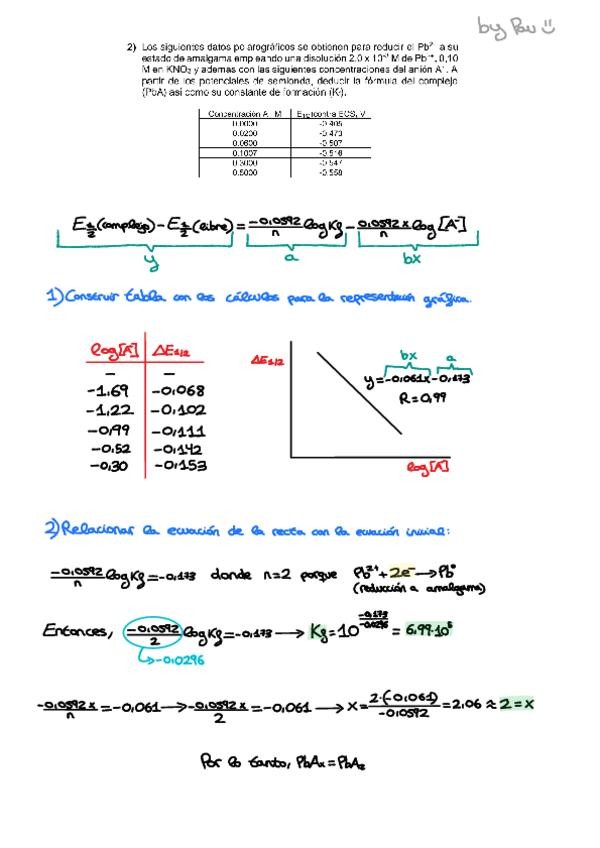 by Pau
2) Los siguientes datos polarográficos se obtienen para reducir el Pb2+ a su
estado de amalgama empleando una disolución 2.0 x 10 M de Pb2+, 0,10
M en KNO3 y ademas con las siguientes concentraciones del anión A-. A
partir de los potenciales de semionda, deducir la fórmula del complejo
(PbA) asi como su constante de formación (Kf).
Concentración A-, M E1/2 (contra ECS, V
0.0000 -0.405
0.0200 -0.473
0.0600 -0.507
0.1007 -0.516
0.3000 -0.547
0.5000 -0.558
E1/2(complejo) - E1/2(libre) = -0,0592/n log Kf - 0,0592 x/n log [A-]
y a bx
1) Construir tabla con los cálculos para la representación gráfica.
log[A-] ΔE1/2
- -
-1,69 -0,068
-1,22 -0,102
-0,99 -0,111
-0,52 -0,142
-0,30 -0,153
ΔE1/2
bx a
y = -0,061x - 0,173
R = 0,99
log[A-]
2) Relacionar la ecuación de la recta con la ecuación inicial:
-0,0592/n log Kf = -0,173 donde n=2 porque Pb2+ + 2e- → Pb°
(reducción a amalgama)
Entonces, -0,0592/2 log Kf = -0,173 → Kf = 10^(-0,173/-0,0296) = 6,99·10^5
-0,0296
-0,0592 x/n = -0,061 → -0,0592 x/2 = -0,061 → x = 2·(-0,061)/-0,0592 = 2,06 ≈ 2 = x
Por lo tanto, PbAx = PbA2